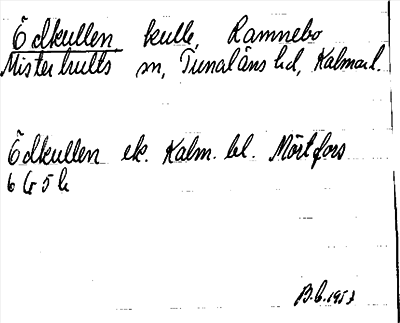 Ödkullen kulle, Ramnebo
Misterhults sn, Tunaläns hd, Kalmar l.
Ödkullen ek. Kalm. bl. Mörtfors
6 G 5 h
B.G. 1957